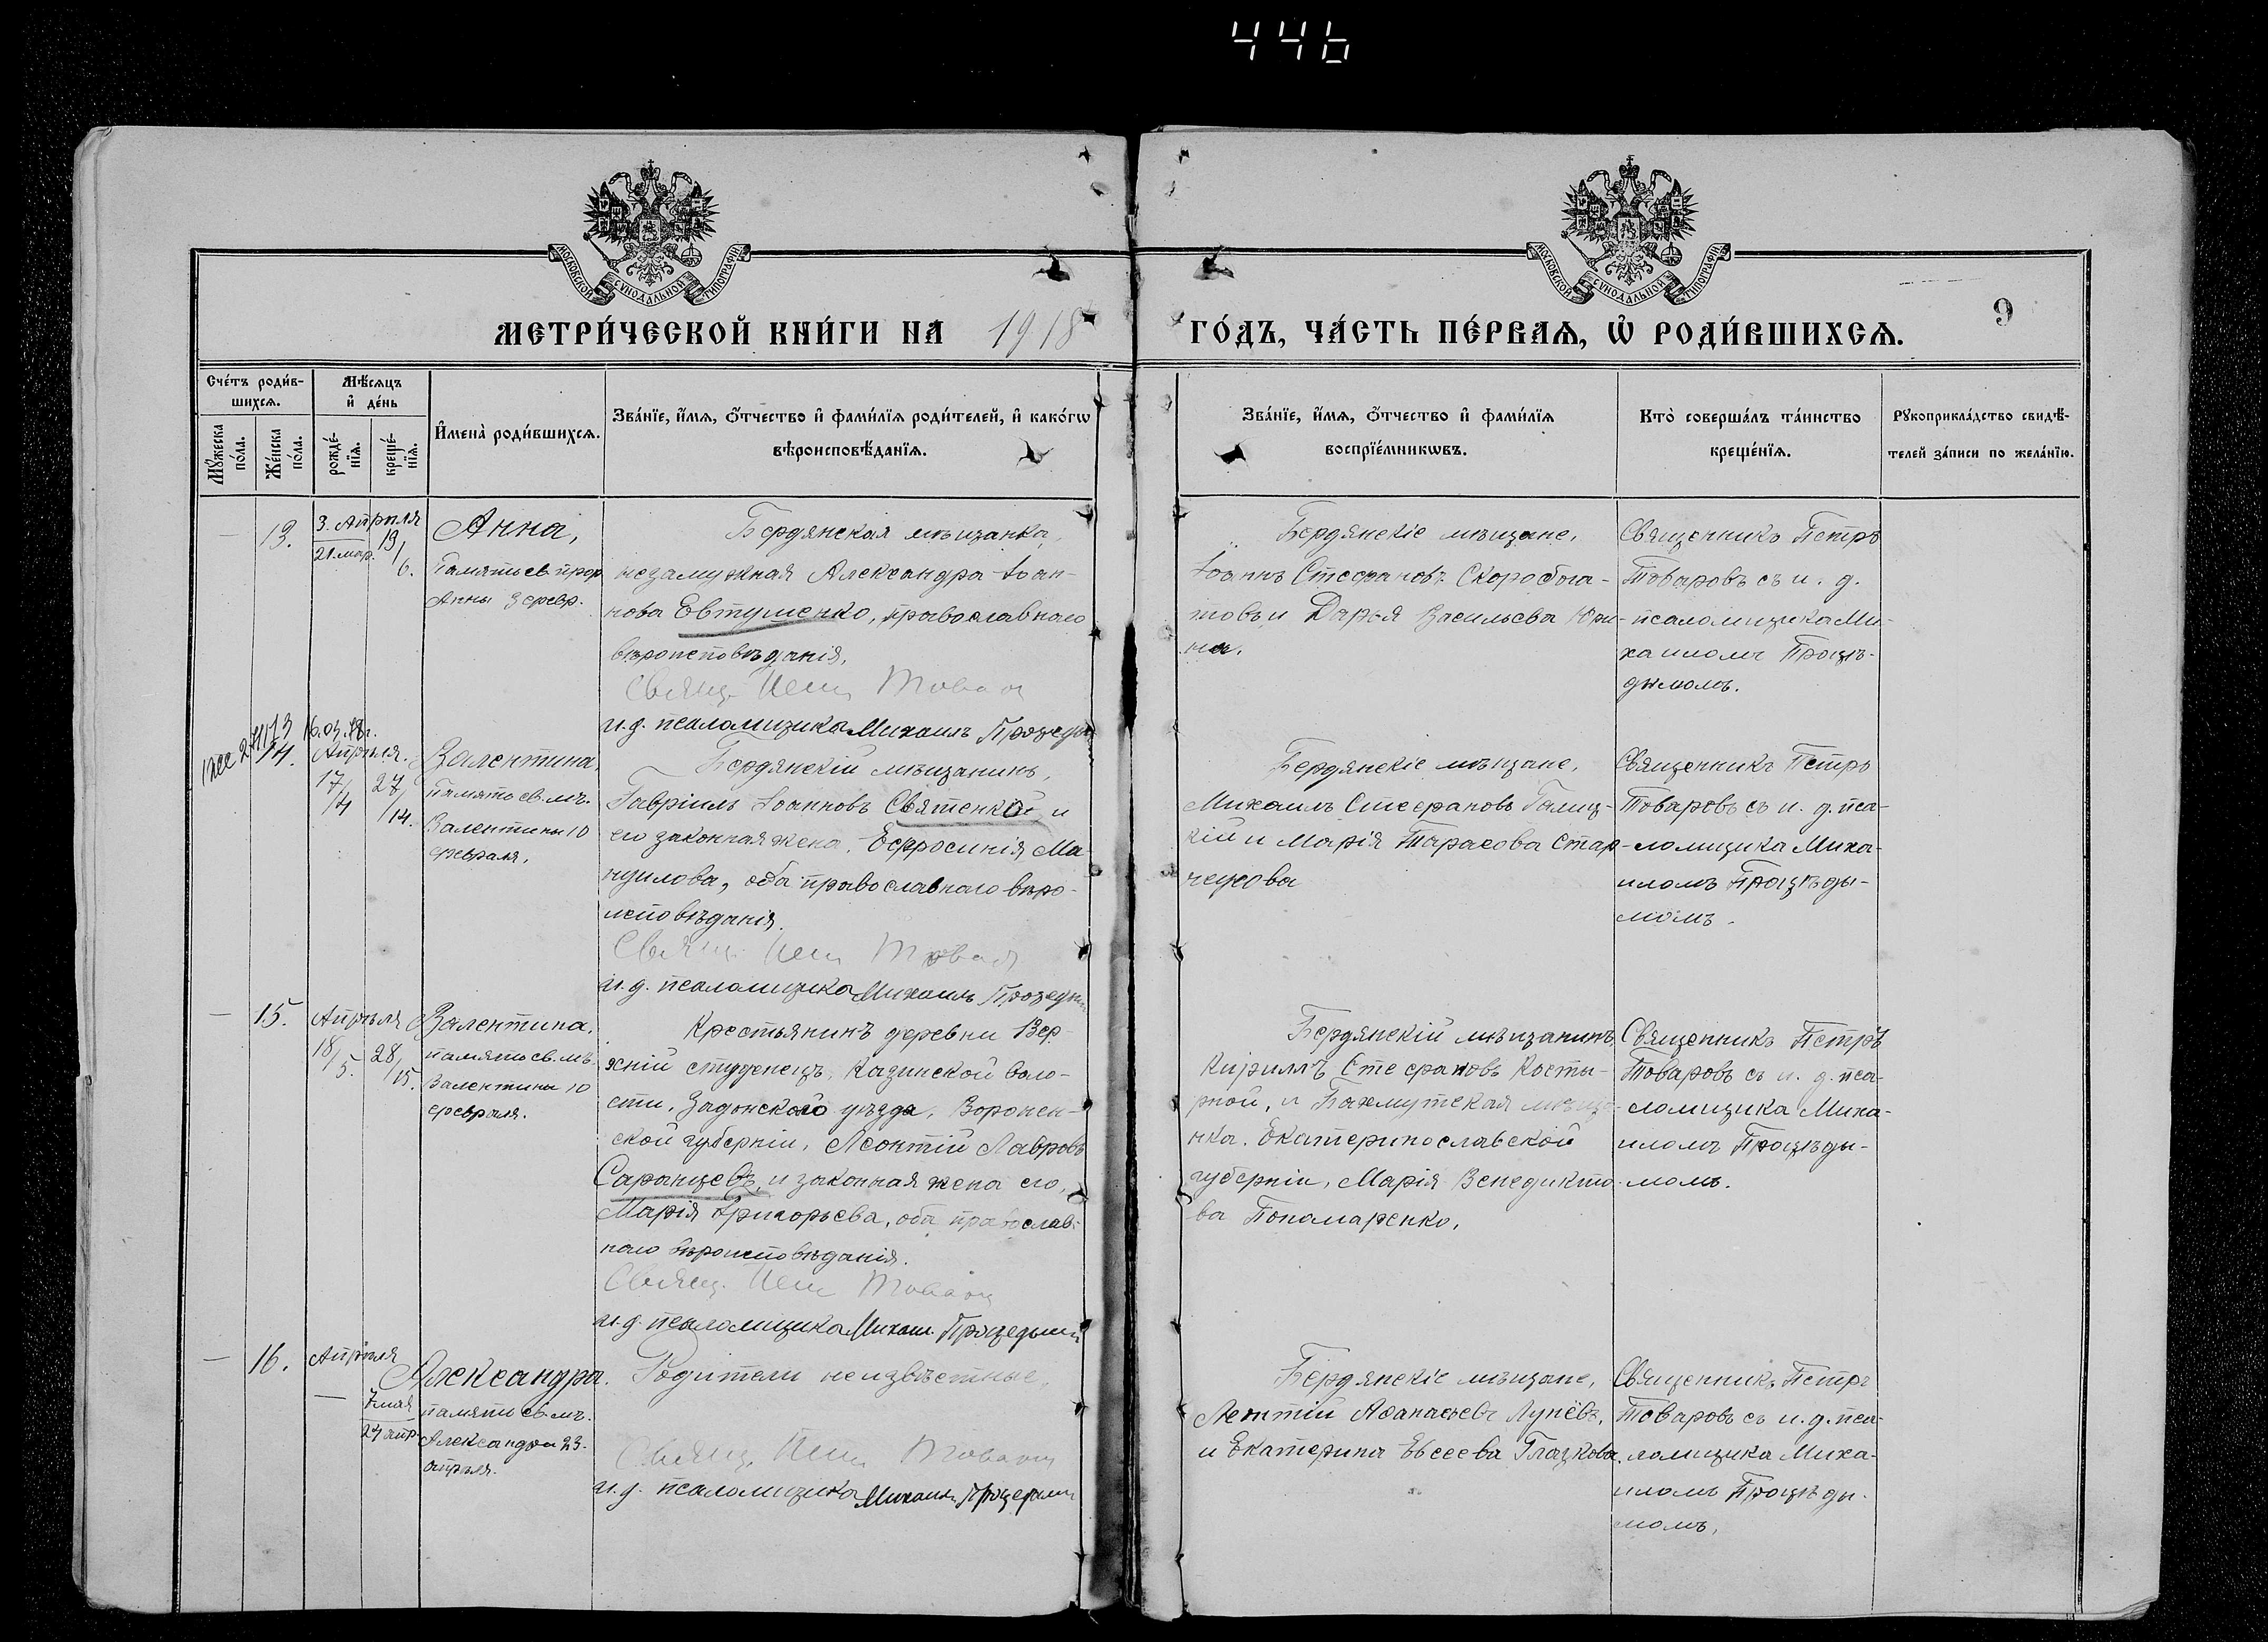 446
МОСКОВСКОЙ СУНОДАЛЬНОЙ ТИПОГРАФІИ
МОСКОВСКОЙ СУНОДАЛЬНОЙ ТИПОГРАФІИ
МЕТРИ́ЧЕСКОЙ КНИ́ГИ НА 1918
ГО́ДЪ, ЧА́СТЬ ПЕ́РВАѦ, Ѡ҆ РОДИ́ВШИХСѦ.
9
Сче́тъ роди́в-
шихсѧ.
Мꙋ́жеска
по́ла.
Же́нска
по́ла.
Мѣ́сѧцъ
и҆ де́нь
рожде́-
нїѧ.
креще́-
нїѧ.
И҆мена̀ роди́вшихсѧ.
Зва́нїе, и҆́мѧ, ѻ҆́тчество и҆ фами́лїѧ роди́телей, и҆ како́гѡ
вѣроисповѣ́данїѧ.
Зва́нїе, и҆́мѧ, ѻ҆́тчество и҆ фами́лїѧ
воспрїе́мникѡвъ.
Кто̀ соверша́лъ та́инство
креще́нїѧ.
Рꙋкоприкла́дство свидѣ́-
телей за́писи по жела́нїю.
—
13.
3. Апрѣля
21. мар.
19/6.
Анна,
Память св. прор.
Анны 3 февр.
Бердянская мѣщанка,
незамужная Александра Іоан-
нова Евтушенко, православнаго
вѣроисповѣданія.
Свящ.
и.д. псаломщика Михаилъ
Бердянскіе мѣщане,
Іоаннъ Стефановъ Скоробога-
товъ и Дарья Васильева Юри-
на.
Священникъ Петръ
Товаровъ съ и. д.
псаломщика Ми-
хаиломъ Процѣ-
дымомъ.
14.
Апрѣля.
17/4
27/14.
Валентина,
Память св. мъ.
Валентины 10
февраля.
Бердянскій мѣщанинъ,
Гавріилъ Іоанновъ Святенкой и
его законная жена, Ефросинія Ма-
нуилова, оба православнаго вѣро-
исповѣданія.
Свящ.
и.д. псаломщика Михаилъ
Бердянскіе мѣщане,
Михаилъ Стефановъ Галиц-
кій и Марія Тарасова Стар-
чеусова
Священникъ Петръ
Товаровъ съ и. д. пса-
ломщика Миха-
иломъ Процѣды-
момъ.
—
15.
Апрѣля
18/5.
28/15.
Валентина.
память св. мъ.
Валентины 10
февраля.
Крестьянинъ деревни Вер-
хній студенецъ, Казинской воло-
сти, Задонскаго уѣзда, Воронеж-
ской губерніи, Леонтій Лавровъ
Саранцевъ, и законная жена его,
Марія Григорьева, оба православ-
наго вѣроисповѣданія.
Свящ.
и.д. псаломщика Михаил. Процедымъ
Бердянскій мѣщанинъ,
Кириллъ Стефановъ Косты-
рной, и Бахмутская мѣща-
нка, Екатеринославской
губерніи, Марія Венедикто-
ва Пономаренко.
Священникъ Петръ
Товаровъ съ и. д. пса-
ломщика Миха-
иломъ Процѣды-
момъ.
—
16.
Апрѣля
—
7 мая
24 апр.
Александра.
память св. мъ.
Александры 23.
апрѣля.
Родители неизвѣстные,
Свящ.
и.д. псаломщика Михаилъ
Бердянскіе мѣщане,
Леонтій Афанасьевъ Лунёвъ,
и Екатерина Евсеева Глазкова.
Священникъ Петръ
Товаровъ съ и. д. пса-
ломщика Миха-
иломъ Процѣды-
момъ.